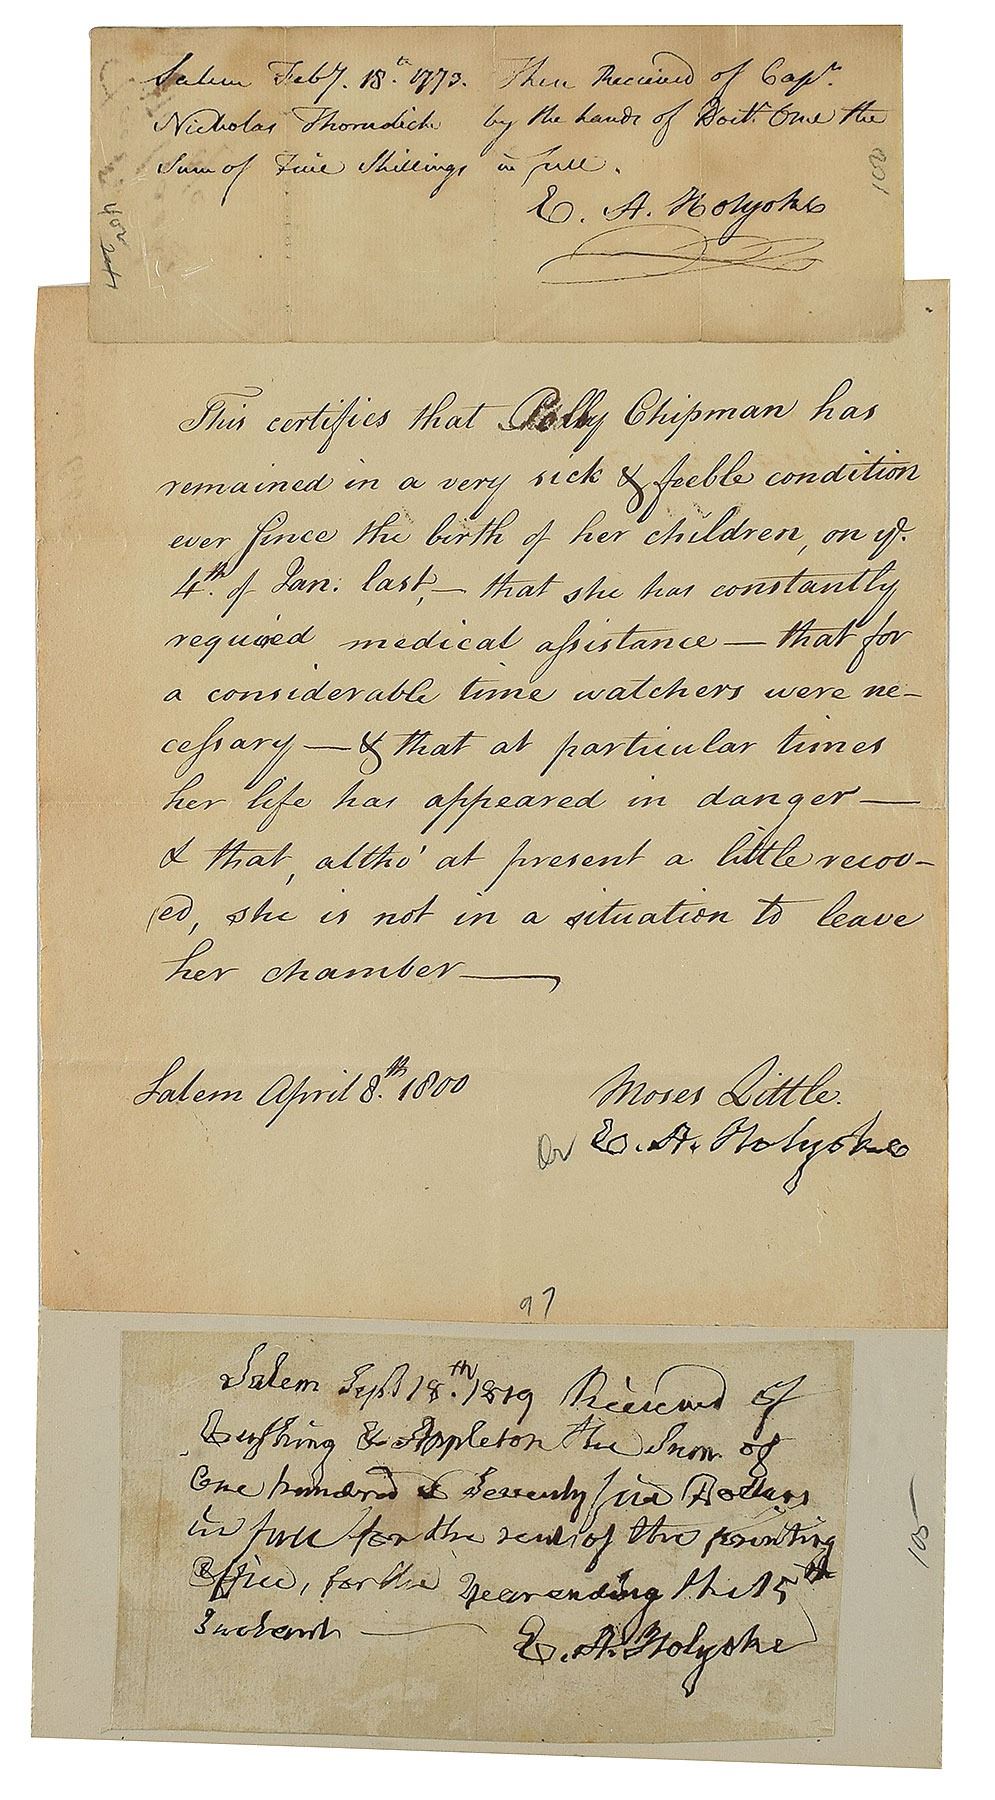 Salem Feby. 18th. 1773. Then Received of Capn.
Nicholas Thorndick by the hands of Doctr. Orne the
Sum of Five Shillings in full.
E. A. Holyoke
100
This certifies that Polly Chipman has
remained in a very sick & feeble condition
ever since the birth of her children, on ye.
4th. of Jan: last, — that she has constantly
required medical assistance — that for
a considerable time watchers were ne-
cessary — & that at particular times
her life has appeared in danger —
& that, altho' at present a little recov-
ed, she is not in a situation to leave
her chamber —
Salem April 8.th 1800
Moses Little.
E. A. Holyoke
97
Salem Sept 18.th 1819 Received of
Cushing & Appleton the Sum of
One hundred & Seventy five Dollars
in full for the rent of the printing
Office, for the Year ending the 15th
Instant —
E. A. Holyoke
105